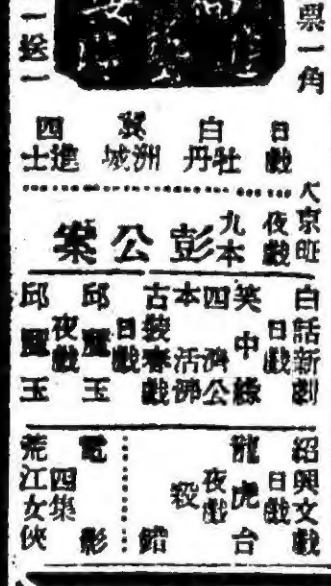 票一角
一送一
日戲
白牡丹
冀洲城
四進士
大京班
夜戲
九本
彭公案
白話新劇
日戲
笑中緣
四本
濟公活佛
古裝春戲
日戲
邱麗玉
夜戲
邱麗玉
紹興文戲
日戲
龍虎台
夜戲
電影
四集
荒江女俠